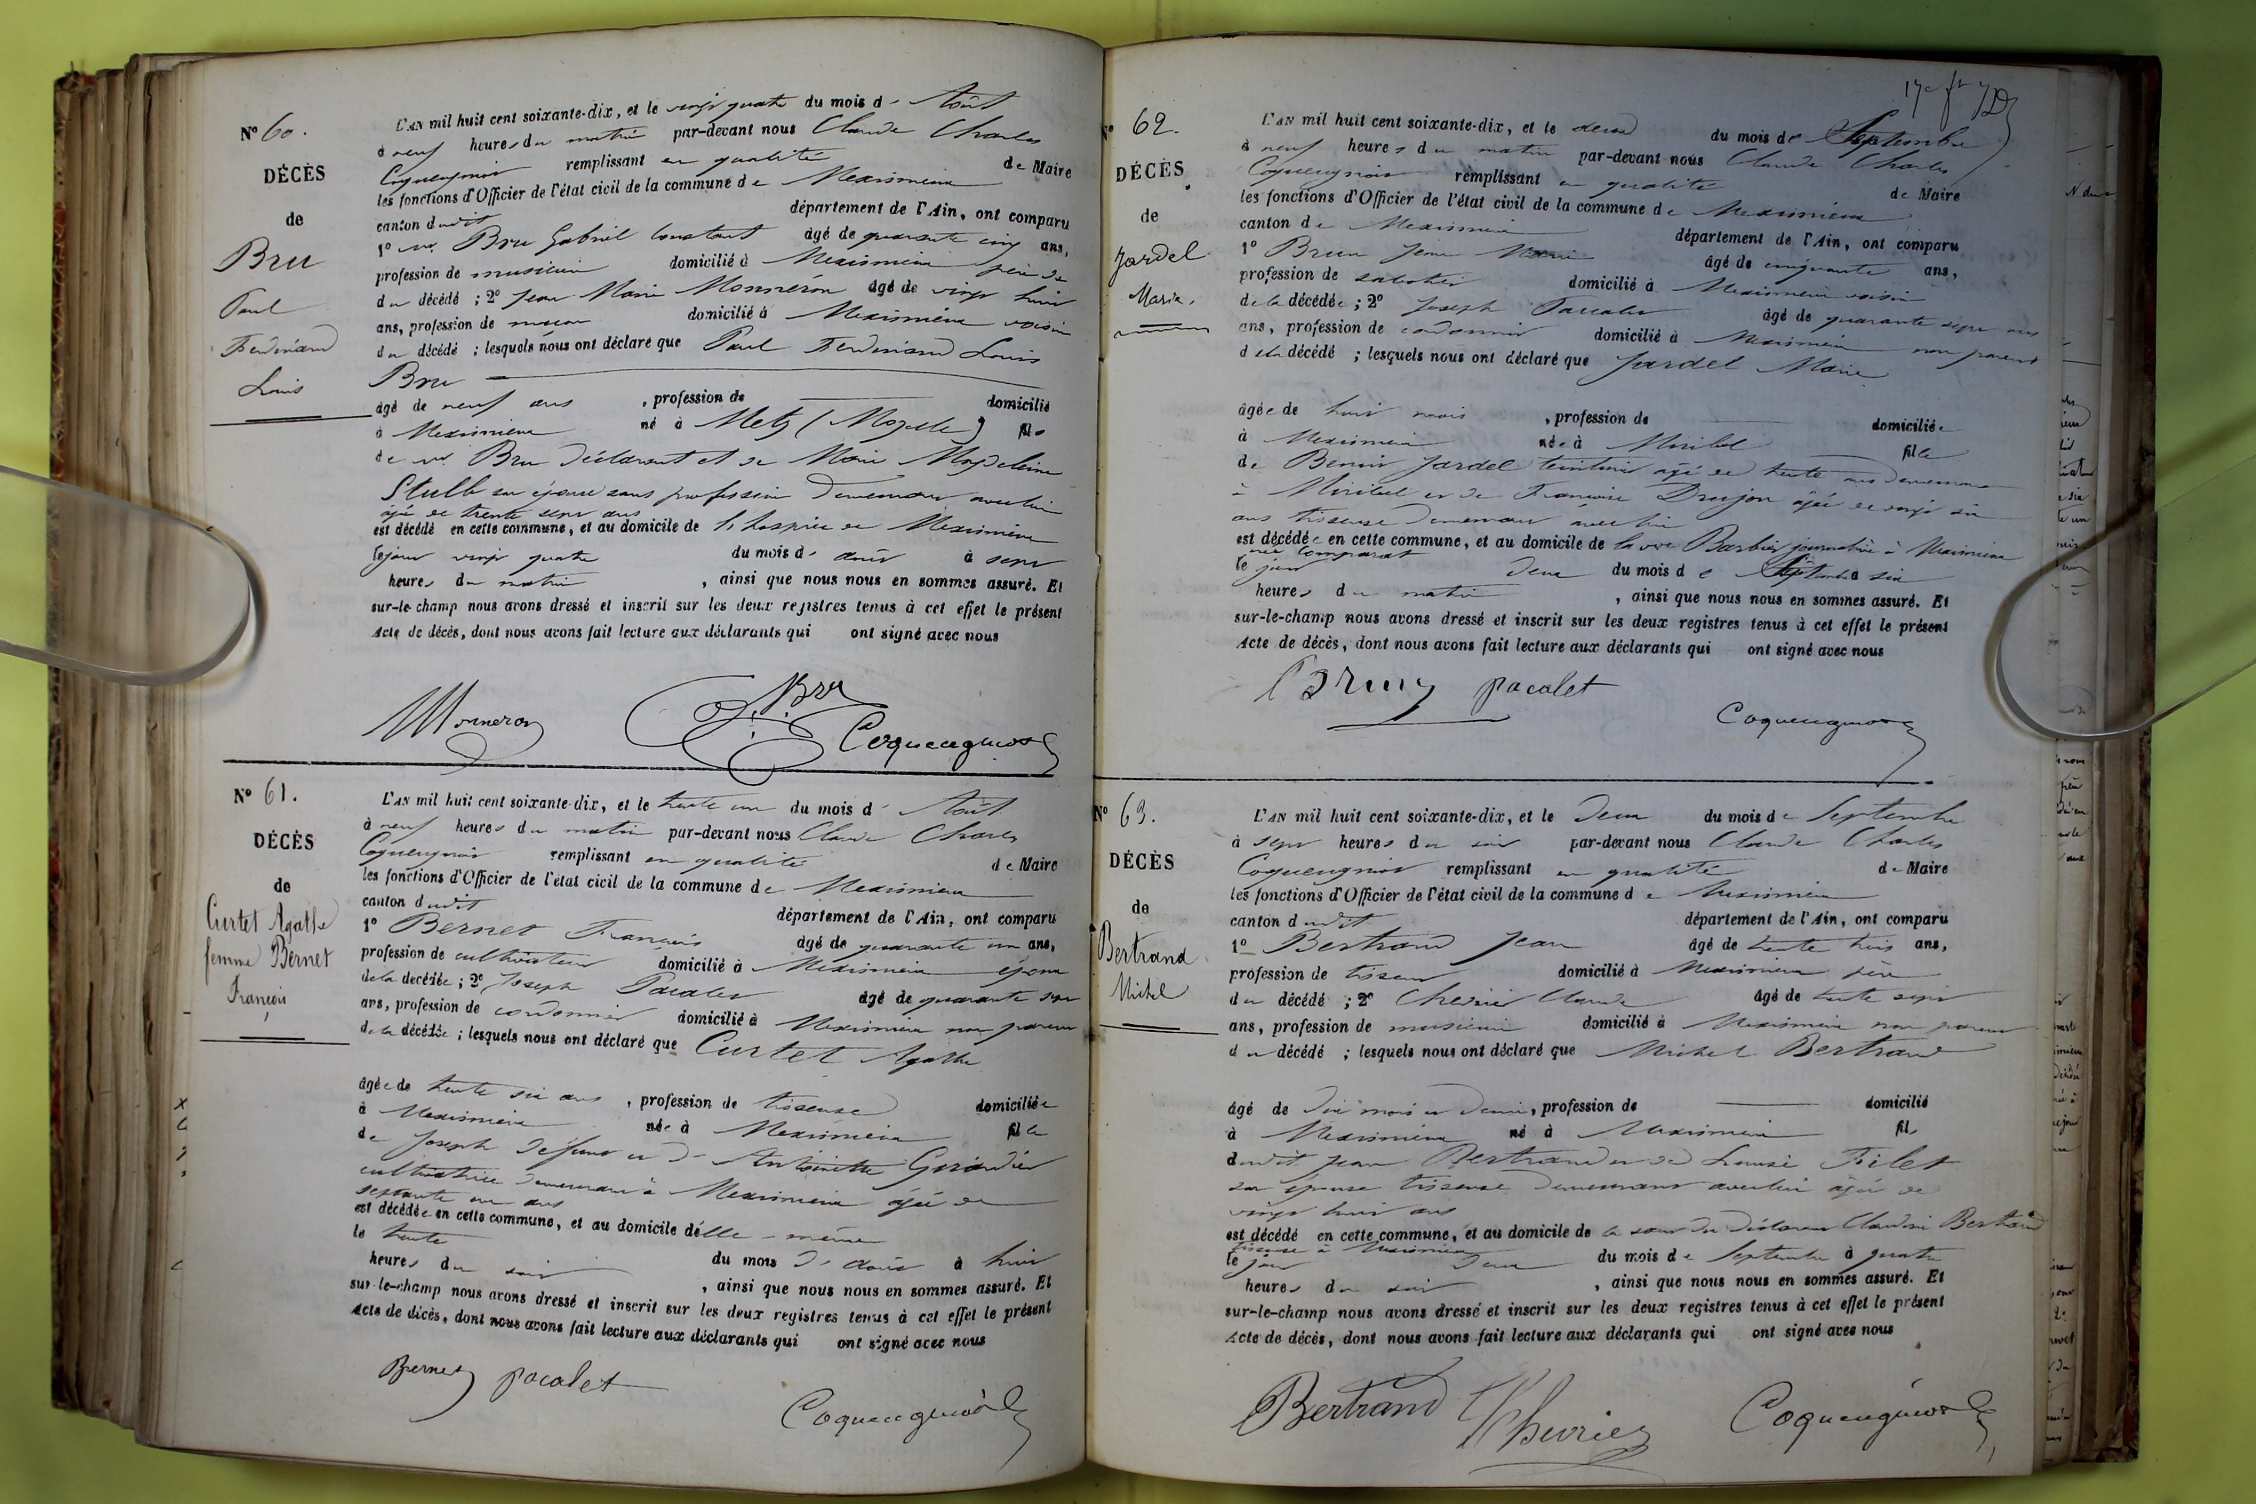 N° 60.
DÉCÈS
de
Bru
Paul
Ferdinand
Louis
L'AN mil huit cent soixante-dix, et le vingt quatre du mois d' Août
à neuf heures du matin par-devant nous Claude Charles
Coqueugniot remplissant en qualité de Maire
les fonctions d'Officier de l'état civil de la commune de Meximieux
canton dudit département de l'Ain, ont comparu
1° Bru Gabriel Constant âgé de quarante cinq ans,
profession de musicien domicilié à Meximieux père de
du décédé ; 2° Jean Marie Monnéron âgé de vingt huit
ans, profession de domicilié à Meximieux voisin
du décédé ; lesquels nous ont déclaré que Paul Ferdinand Louis
Bru
âgé de neuf ans , profession de domicilié
à Meximieux né à Metz (Mozelle) fils
de Bru déclarant et de Marie Magdeleine
Stulb son épouse sans profession demeurant avec lui
âgée de trente sept ans
est décédé en cette commune, et au domicile de l'hospice de Meximieux
le jour vingt quatre du mois d' août à sept
heures du matin , ainsi que nous nous en sommes assuré. Et
sur-le-champ nous avons dressé et inscrit sur les deux registres tenus à cet effet le présent
Acte de décès, dont nous avons fait lecture aux déclarants qui ont signé avec nous
Monneron Bru Coqueugniot
N° 61.
DÉCÈS
de
Curtet Agathe
femme Bernet
François
L'AN mil huit cent soixante-dix, et le trente un du mois d' Août
à neuf heures du matin par-devant nous Claude Charles
Coqueugniot remplissant en qualité de Maire
les fonctions d'Officier de l'état civil de la commune de Meximieux
canton dudit département de l'Ain, ont comparu
1° Bernet François âgé de quarante un ans,
profession de cultivateur domicilié à Meximieux époux
de la décédée ; 2° Joseph Pacalet âgé de quarante sept
ans, profession de cordonnier domicilié à Meximieux non parent
de la décédée ; lesquels nous ont déclaré que Curtet Agathe
âgée de trente six ans , profession de tisseuse domiciliée
à Meximieux née à Meximieux fille
de Joseph défunt et d' Antoinette Girardier
cultivatrice demeurant à Meximieux âgée de
septante un ans
est décédée en cette commune, et au domicile d'elle-même
le trente du mois d' août à huit
heures du soir , ainsi que nous nous en sommes assuré. Et
sur-le-champ nous avons dressé et inscrit sur les deux registres tenus à cet effet le présent
Acte de décès, dont nous avons fait lecture aux déclarants qui ont signé avec nous
Bernet pacalet
Coqueugniot
N° 62.
DÉCÈS
de
Jardel
Marie.
L'AN mil huit cent soixante-dix, et le deux du mois de Septembre
à neuf heures du matin par-devant nous Claude Charles
Coqueugniot remplissant en qualité de Maire
les fonctions d'Officier de l'état civil de la commune de Meximieux
canton de Meximieux département de l'Ain, ont comparu
1° Brun Jean Marie âgé de cinquante ans,
profession de sabotier domicilié à Meximieux voisin
de la décédée ; 2° Joseph Pacalet âgé de quarante sept ans
ans, profession de cordonnier domicilié à Meximieux non parent
de la décédé ; lesquels nous ont déclaré que Jardel Marie
âgée de huit mois , profession de domiciliée
à Meximieux née à Miribel fille
de Benoit Jardel teinturier âgé de trente ans demeurant
à Miribel et de Françoise Drujon âgée de vingt six
ans tisseuse demeurant avec lui
est décédée en cette commune, et au domicile de la vve Barbier journalière à Meximieux
née Comparat
le jour deux du mois de Septembre à six
heures du matin , ainsi que nous nous en sommes assuré. Et
sur-le-champ nous avons dressé et inscrit sur les deux registres tenus à cet effet le présent
Acte de décès, dont nous avons fait lecture aux déclarants qui ont signé avec nous
Brun pacalet
Coqueugniot
N° 63.
DÉCÈS
de
Bertrand
Michel
L'AN mil huit cent soixante-dix, et le deux du mois de Septembre
à sept heures du soir par-devant nous Claude Charles
Coqueugniot remplissant en qualité de Maire
les fonctions d'Officier de l'état civil de la commune de Meximieux
canton dudit département de l'Ain, ont comparu
1° Bertrand Jean âgé de trente trois ans,
profession de tisseur domicilié à Meximieux père
du décédé ; 2° Chevrier Claude âgé de trente sept
ans, profession de musicien domicilié à Meximieux non parent
du décédé ; lesquels nous ont déclaré que Michel Bertrand
âgé de dix mois et demi, profession de domicilié
à Meximieux né à Meximieux fils
dudit Jean Bertrand et de Louise Filet
son épouse tisseuse demeurant avec lui âgée de
vingt huit ans
est décédé en cette commune, et au domicile de la sœur du déclarant Claudine Bertrand
tisseuse à Meximieux
le jour deux du mois de Septembre à quatre
heures du soir , ainsi que nous nous en sommes assuré. Et
sur-le-champ nous avons dressé et inscrit sur les deux registres tenus à cet effet le présent
Acte de décès, dont nous avons fait lecture aux déclarants qui ont signé avec nous
Bertrand Chevrier Coqueugniot